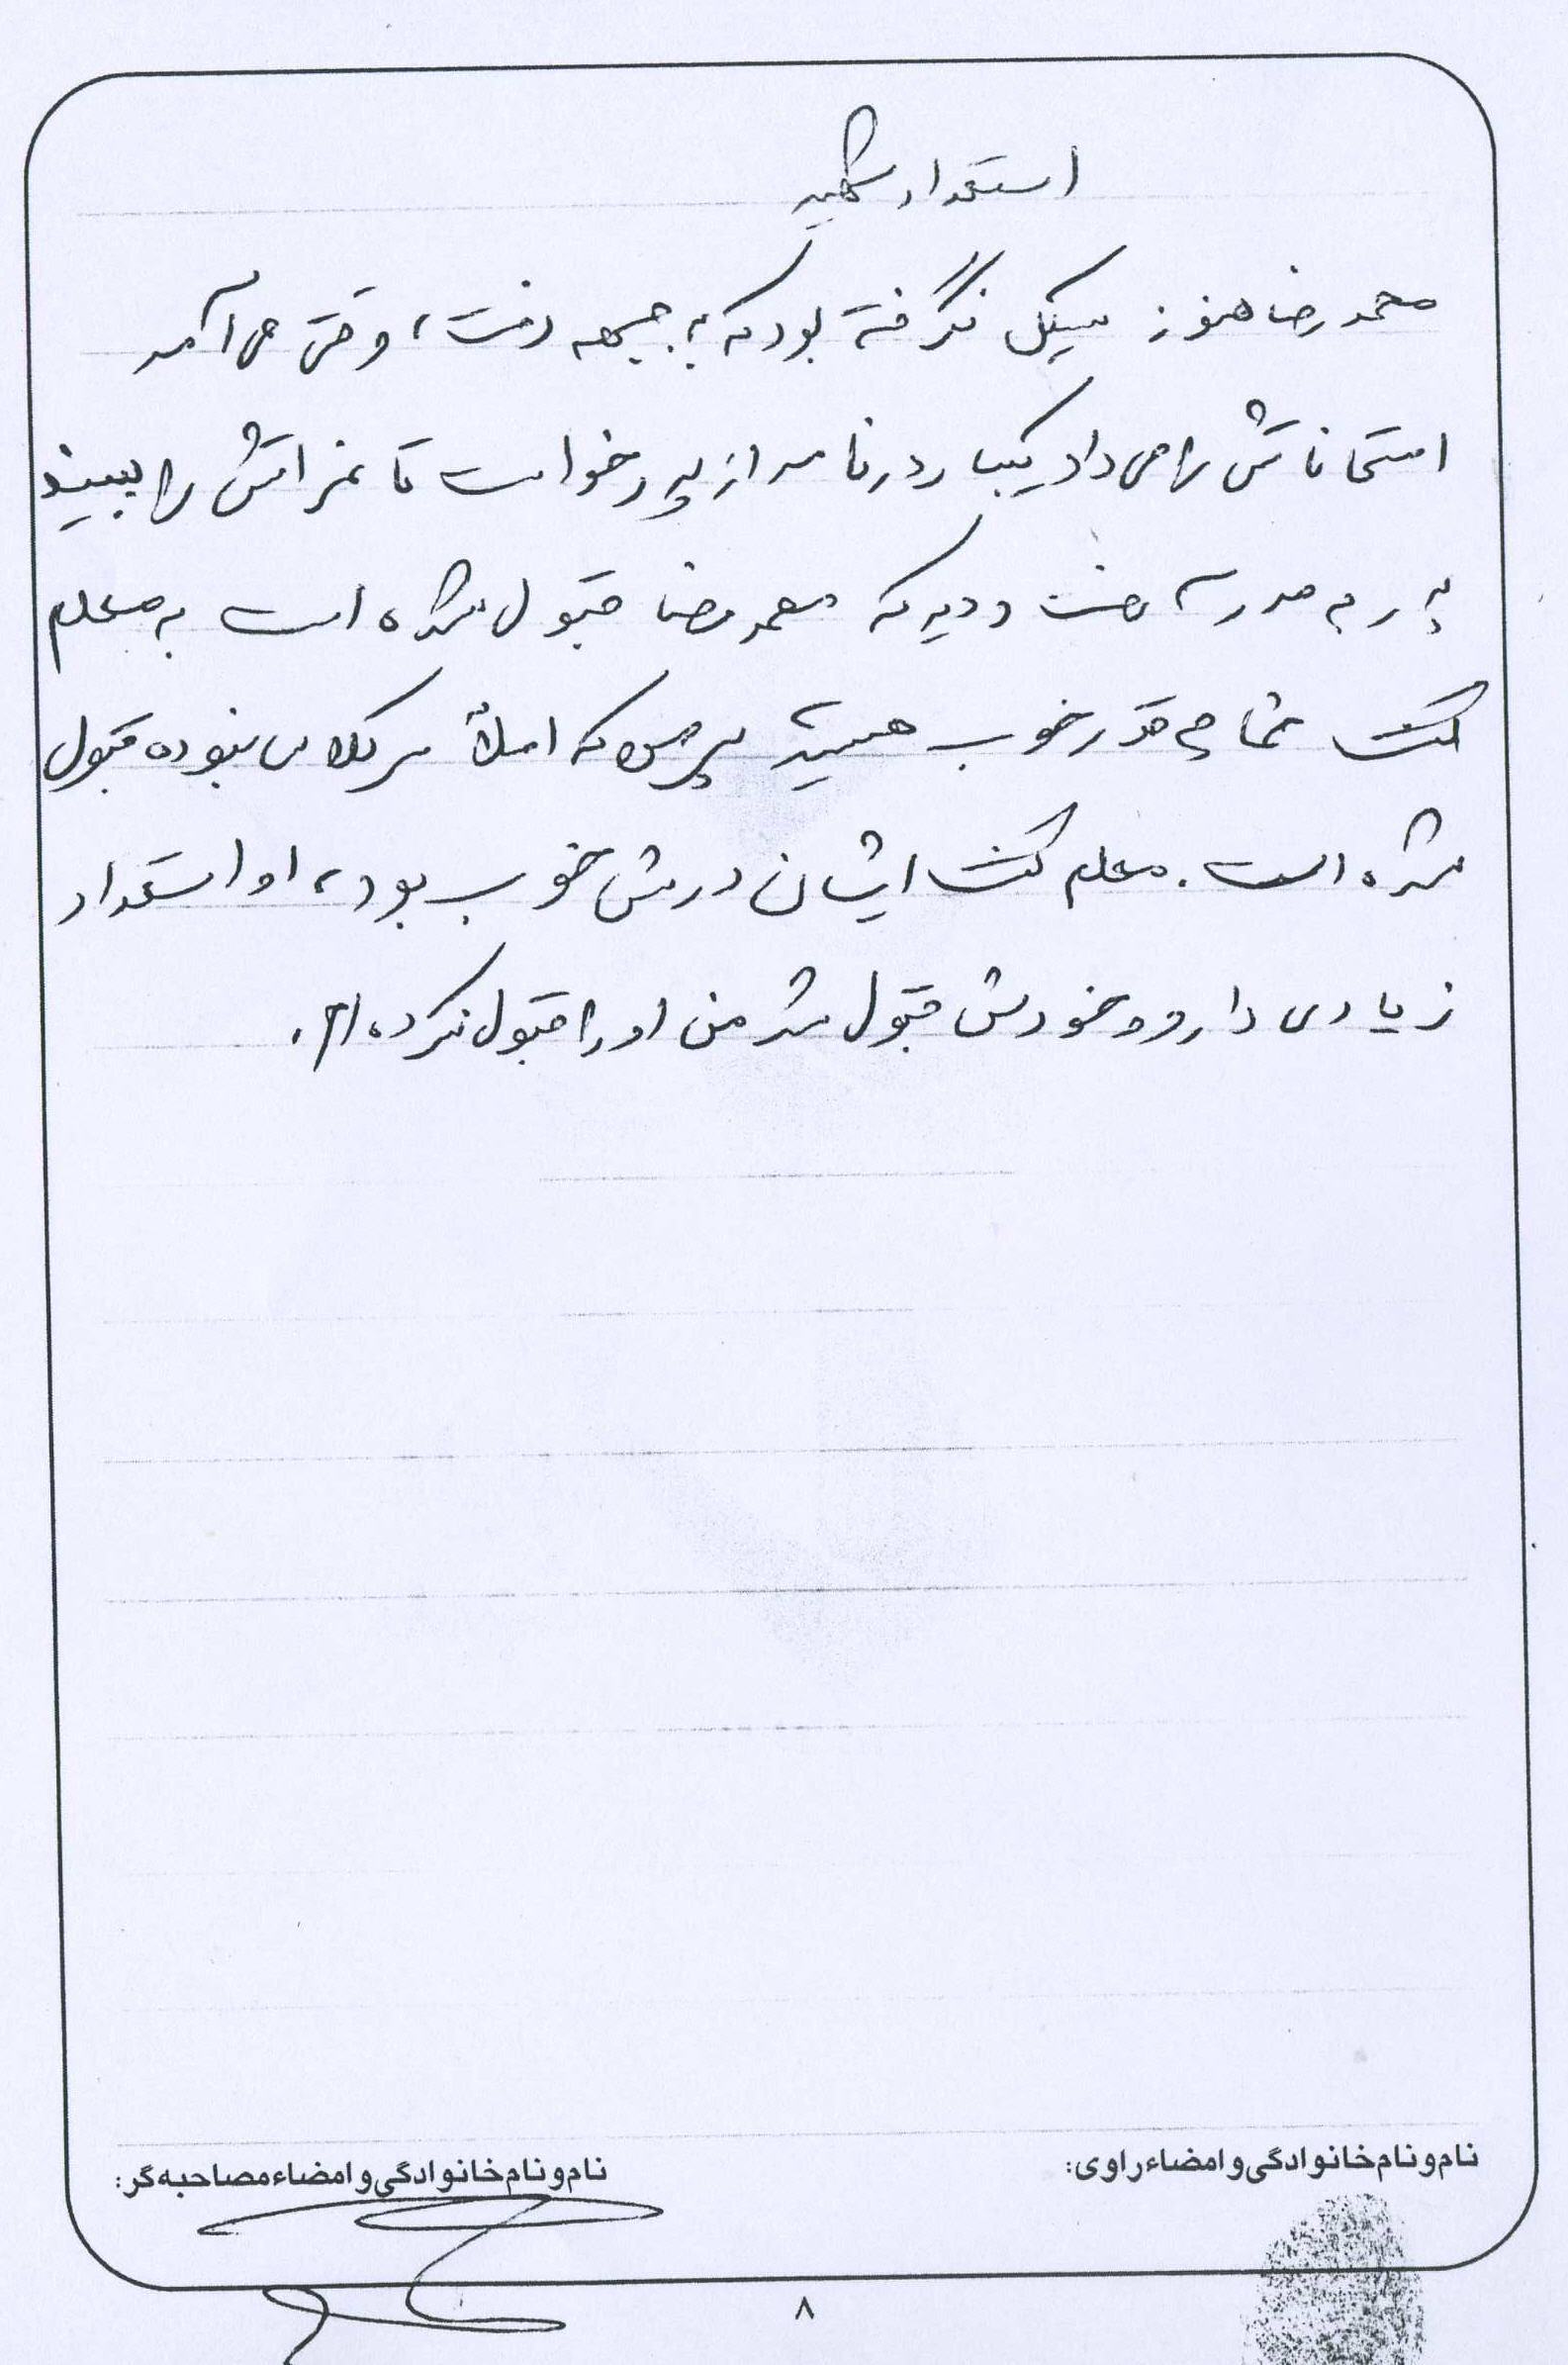 استعداد شهید
محمدرضا هنوز سیکل نگرفته بود که به جبهه رفت، وقتی می آمد
امتحاناتش را می داد یکبار در نامه از پدر خواست تا نمراتش را ببیند
پدر به مدرسه رفت و دید که محمدرضا قبول شده است به معلم
گفت شما چه قدر خوب هستید پسرم که اصلاً سر کلاس نبوده قبول
شده است. معلم گفت ایشان درسش خوب بود، او استعداد
زیادی دارد و خودش قبول شد من او را قبول نکرده ام.
نام و نام خانوادگی و امضاء راوی:
نام و نام خانوادگی و امضاء مصاحبه گر:
۸